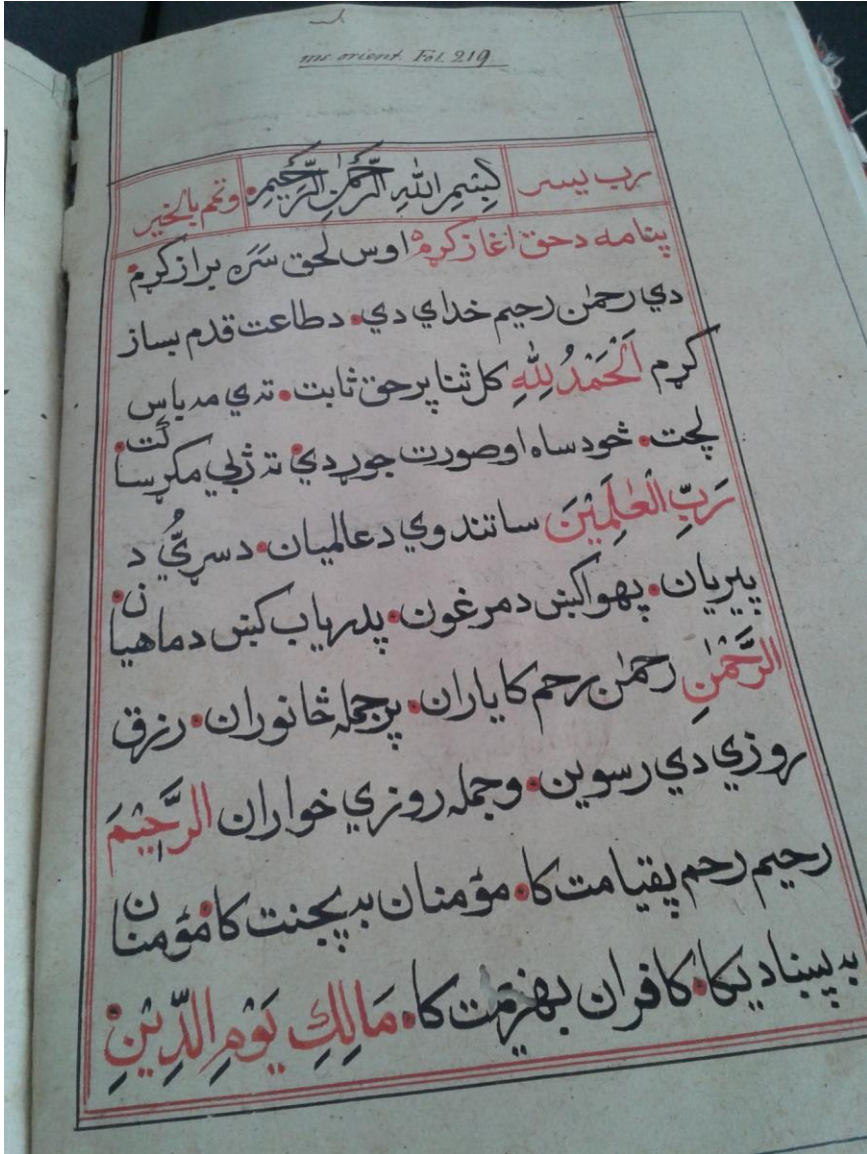 ms. orient. Fol. 219
رب يسر بِسْمِ اللهِ الرَّحْمٰنِ الرَّحِيْمِ وتمم بالخير
پنامه دحق اغاز كړم اوس لحق سَرَه براز كړم
دي رحمٰن رحيم خداي دي دطاعت قدم بساز
كړم اَلْحَمْدُ لِلّٰهِ كل ثنا پر حق ثابت ته ي مه باس
پجت څود ساه اوصورت جوړ دي ته ژبي مكړ ساكت
رَبِّ الْعٰلَمِيْنَ ساتندوي دعالميان دسړيُّ د
پيريان پهوا كښ دمرغون پدرياب كښ دماهيان
الرَّحْمٰنِ رحمٰن رحم كا ياران پر جمله ځانوران رزق
روزي دي رسوين وجمله روزي خواران الرَّحِيْمِ
رحيم رحم پقيامت كا مؤمنان به پجنت كا مؤمنان
به پښاديكا كافران بهزيمت كا مَالِكِ يَوْمِ الدِّيْنِ